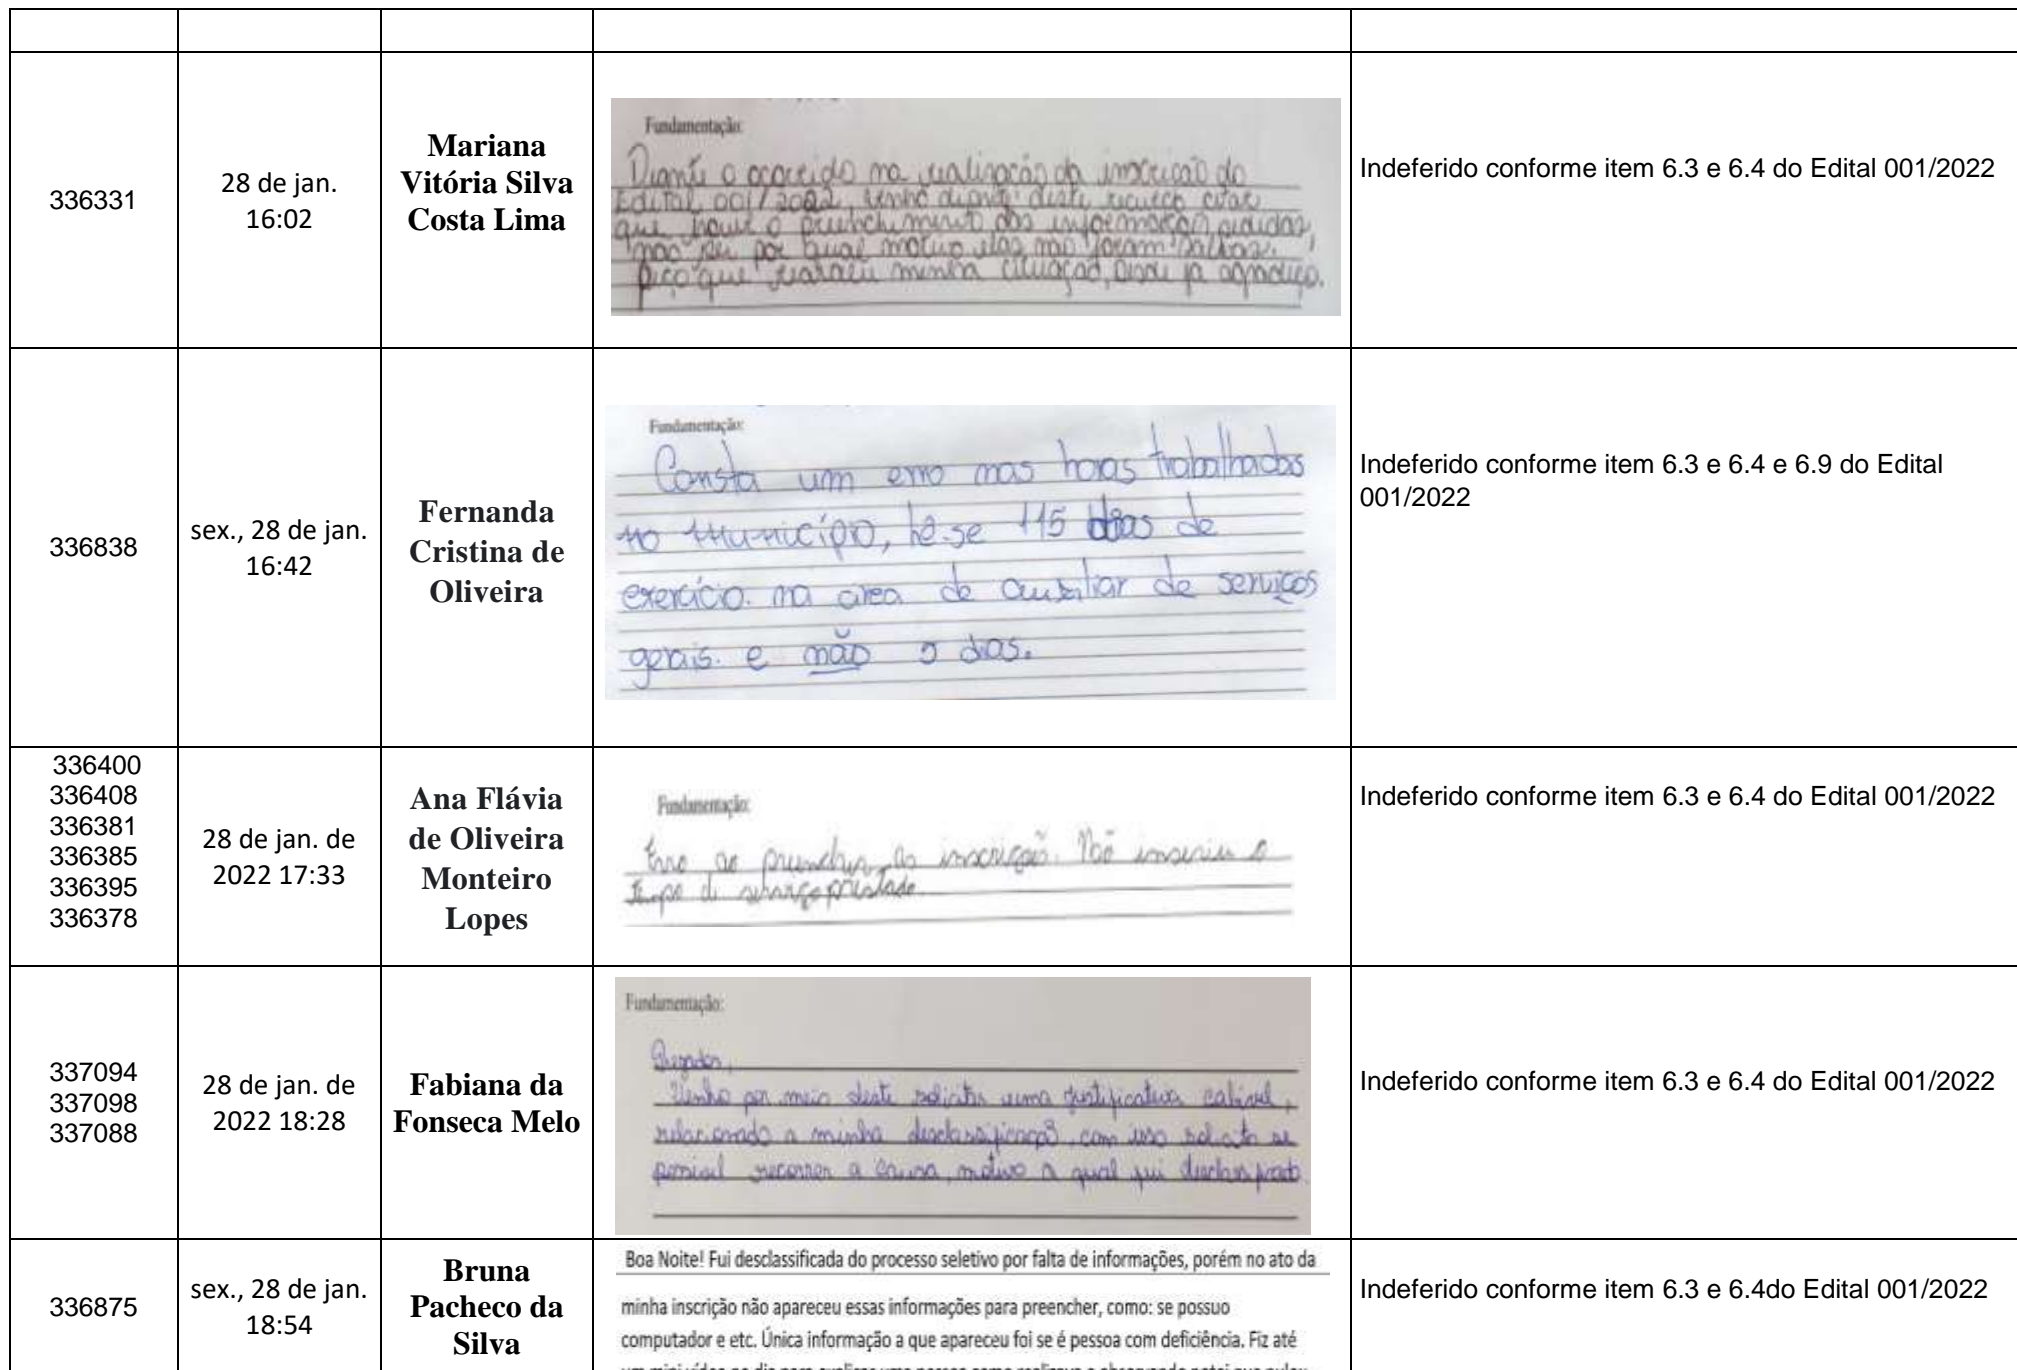 336331
28 de jan.
16:02
Mariana
Vitória Silva
Costa Lima
Fundamentação:
Diante o ocorrido na realização da inscrição do
Edital 001/2022, venho diante deste recurso citar
que houve o preenchimento das informações pedidas,
não sei por qual motivo elas não foram salvas.
peço que minha desde já agradeço.
Indeferido conforme item 6.3 e 6.4 do Edital 001/2022
336838
sex., 28 de jan.
16:42
Fernanda
Cristina de
Oliveira
Fundamentação:
Consta um erro nas horas trabalhadas
no Município, lê-se 115 dias de
exercício na área de auxiliar de serviços
gerais. e não 5 dias.
Indeferido conforme item 6.3 e 6.4 e 6.9 do Edital
001/2022
336400
336408
336381
336385
336395
336378
28 de jan. de
2022 17:33
Ana Flávia
de Oliveira
Monteiro
Lopes
Fundamentação:
Erro ao preencher as inscrição. Não inseriu o
tempo de serviço prestado.
Indeferido conforme item 6.3 e 6.4 do Edital 001/2022
337094
337098
337088
28 de jan. de
2022 18:28
Fabiana da
Fonseca Melo
Fundamentação:
Prezados,
Venho por meio deste solicitar uma justificativa cabível,
relacionado a minha desclassificação, com isso solicito se
possível recorrer a causa, motivo a qual fui
Indeferido conforme item 6.3 e 6.4 do Edital 001/2022
336875
sex., 28 de jan.
18:54
Bruna
Pacheco da
Silva
Boa Noite! Fui desclassificada do processo seletivo por falta de informações, porém no ato da
minha inscrição não apareceu essas informações para preencher, como: se possuo
computador e etc. Única informação a que apareceu foi se é pessoa com deficiência. Fiz até
Indeferido conforme item 6.3 e 6.4do Edital 001/2022